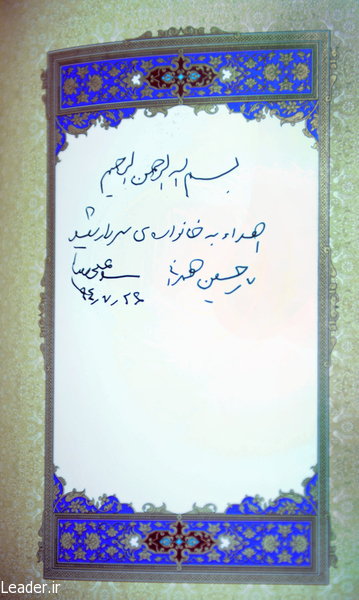 بسم الله الرحمن الرحیم
اهداء به خانواده‌ی سردار شهید
حسین همدانی
سیدعلی خامنه‌ای
۹۴٫۷٫۲۶
Leader.ir